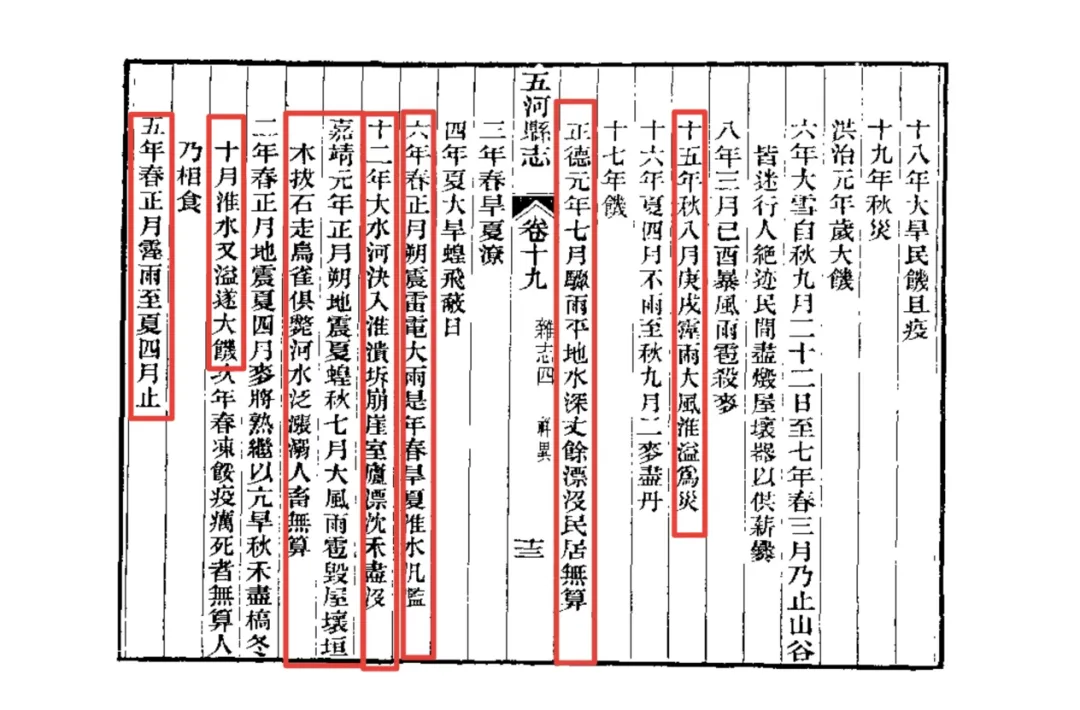 十八年大旱民饑且疫
十九年秋災
洪治元年歲大饑
六年大雪自秋九月二十二日至七年春三月乃止山谷
皆迷行人絶迹民間盡燬屋壞器以供薪爨
八年三月己酉暴風雨雹殺麥
十五年秋八月庚戌霪雨大風淮溢爲災
十六年夏四月不雨至秋九月二麥盡丹
十七年饑
正德元年七月驟雨平地水深丈餘漂沒民居無算
五河縣志
卷十九
雜志四
祥異
十三
三年春旱夏潦
四年夏大旱蝗飛蔽日
六年春正月朔震雷電大雨是年春旱夏淮水汎濫
十二年大水河決入淮潰坼崩崖室廬漂沈禾盡沒
嘉靖元年正月朔地震夏蝗秋七月大風雨雹毀屋壞垣
木拔石走鳥雀俱斃河水泛漲溺人畜無算
二年春正月地震夏四月麥將熟繼以亢旱秋禾盡槁冬
十月淮水又溢遂大饑次年春凍餒疫癘死者無算人
乃相食
五年春正月霪雨至夏四月止